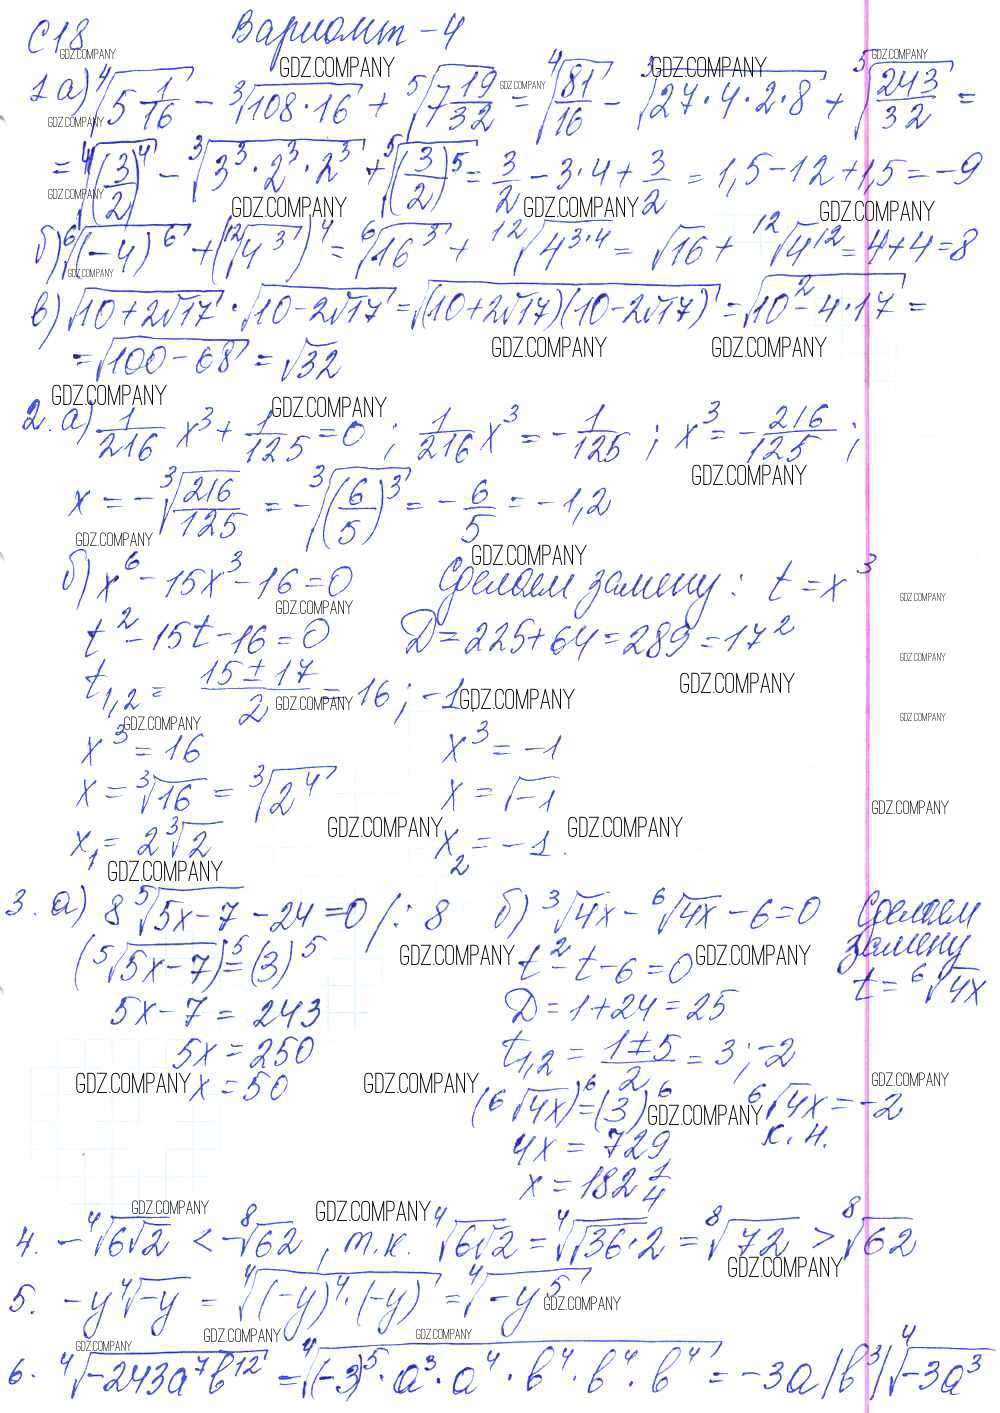 С18 Вариант - 4
1 а) ⁴√(5 1/16) - ³√(108·16) + ⁵√(7 19/32) = ⁴√(81/16) - ³√(27·4·2·8) + ⁵√(243/32) =
= ⁴√((3/2)⁴) - ³√(3³·2³·2³) + ⁵√((3/2)⁵) = 3/2 - 3·4 + 3/2 = 1,5 - 12 + 1,5 = -9
б) ⁶√((-4)⁶) + (¹²√(4³))⁴ = ⁶√(16³) + ¹²√(4^(3·4)) = √16 + ¹²√(4¹²) = 4 + 4 = 8
в) √(10+2√17) · √(10-2√17) = √((10+2√17)(10-2√17)) = √(10² - 4·17) =
= √(100-68) = √32
2. а) 1/216 x³ + 1/125 = 0 ; 1/216 x³ = - 1/125 ; x³ = - 216/125 ;
x = - ³√(216/125) = - ³√((6/5)³) = - 6/5 = -1,2
б) x⁶ - 15x³ - 16 = 0 Сделаем замену: t = x³
t² - 15t - 16 = 0 D = 225 + 64 = 289 = 17²
t₁,₂ = (15 ± 17)/2 = 16 ; -1
x³ = 16 x³ = -1
x = ³√16 = ³√(2⁴) x = √-1
x₁ = 2³√2 x₂ = -1.
3. а) 8 ⁵√(5x-7) - 24 = 0 /: 8 б) ³√(4x) - ⁶√(4x) - 6 = 0 Сделаем
замену
(⁵√(5x-7))⁵ = (3)⁵ t² - t - 6 = 0 t = ⁶√(4x)
5x - 7 = 243 D = 1 + 24 = 25
5x = 250 t₁,₂ = (1 ± 5)/2 = 3 ; -2
x = 50 (⁶√(4x))⁶ = (3)⁶ ⁶√(4x) = -2
4x = 729 к. н.
x = 182 1/4
4. - ⁴√(6√2) < - ⁸√62 , т.к. ⁴√(6√2) = ⁴√(√(36·2)) = ⁸√72 > ⁸√62
5. -y ⁴√(-y) = ⁴√((-y)⁴·(-y)) = ⁴√(-y⁵)
6. ⁴√(-243a⁷b¹²) = ⁴√((-3)⁵·a³·a⁴·b⁴·b⁴·b⁴) = -3a|b³| ⁴√(-3a³)
GDZ.COMPANY